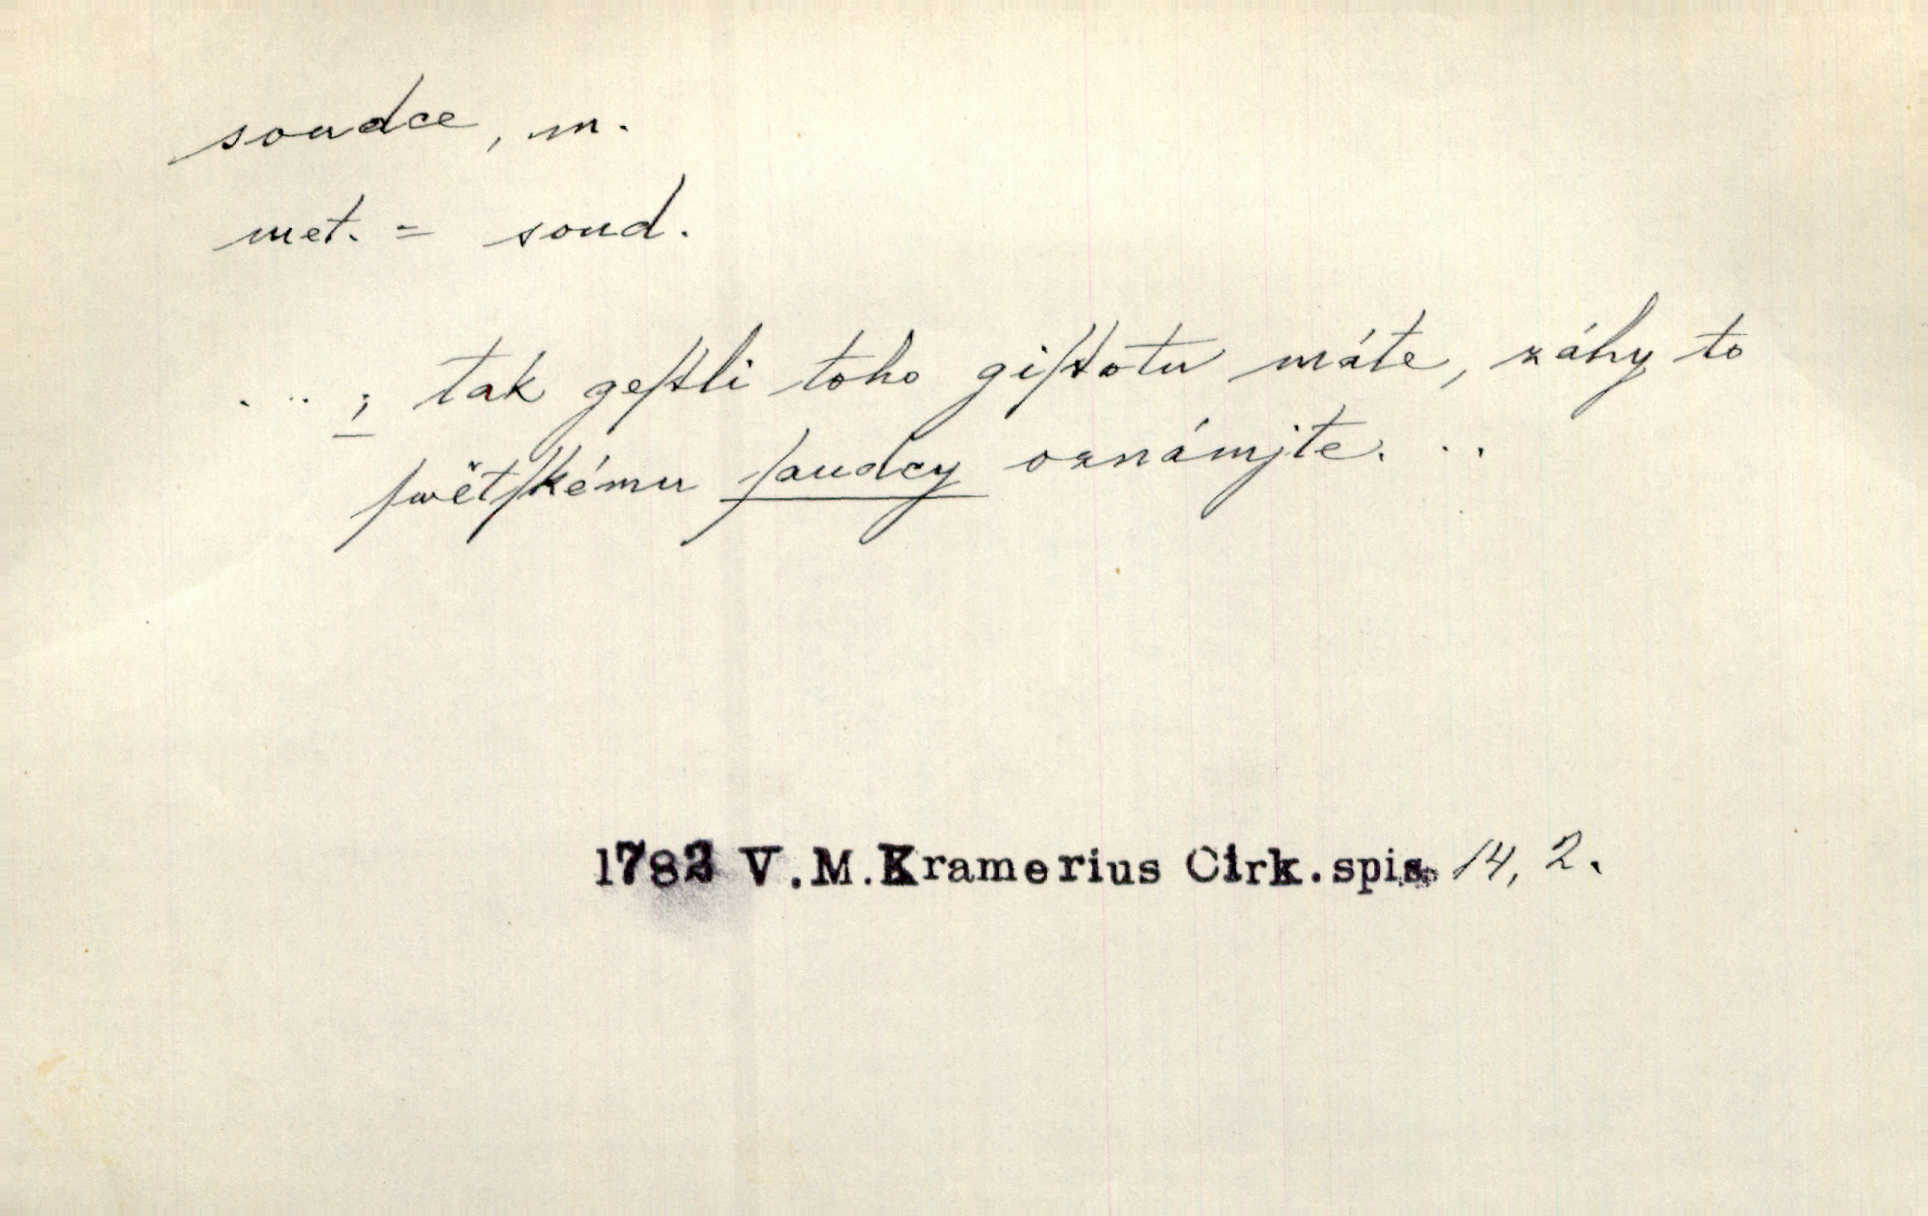 soudce, m.
met. = soud.
... ; tak geſtli toho giſtotu máte, záhy to
ſwětſkému ſaudcy oznámjte. ..
1782 V.M.Kramerius Cirk.spis. 14, 2.